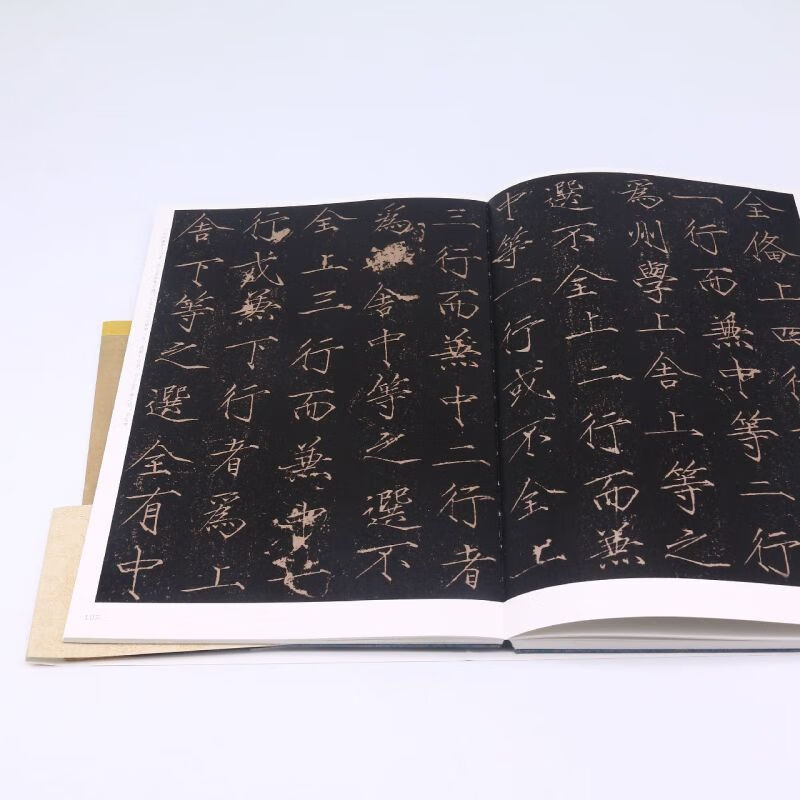 全偹上四行
一行而兼中等二行
爲州學上舍上等之
選不全上二行而兼
中等一行或不全上
三行而兼中二行者
爲舍中等之選不
全上三行而兼中
行或兼下行者爲上
舍下等之選全有中